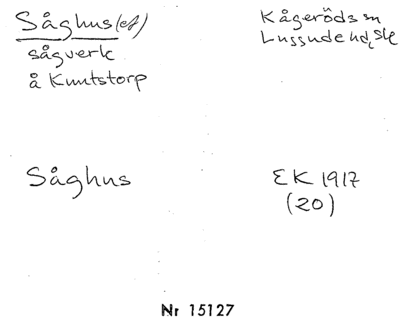 Såghus (ef)
sågverk
å Knutstorp
Kågeröds sn
Luggude hd, Sk
Såghus
EK 1917
(20)
Nr 15127